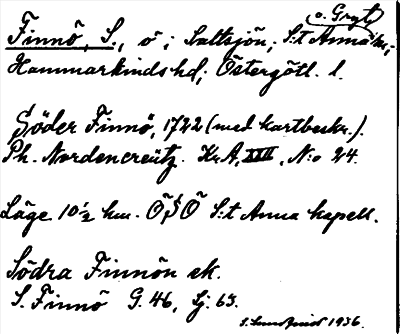 o. Gryt
Finnö, S., ö i Saltsjön, S:t Anna sn;
Hammarkinds hd; Östergötl. l.
Söder Finnö, 1722 (med kartbeskr.).
Ph. Nordencreütz. KrA, XVII, N:o 24.
Läge 10½ km. ÖSÖ S:t Anna kapell.
Södra Finnön ek.
S. Finnö G. 46, Sj: 63.
1936.